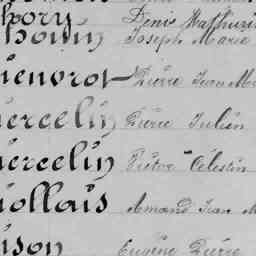 hory Denis Mathurin
houin Joseph Marie
uenrot Pierre Jean M
uercelin Pierre Julien
uercelin Victor Célestin
uiollais Amand Jean M
uison Eugène Pierre